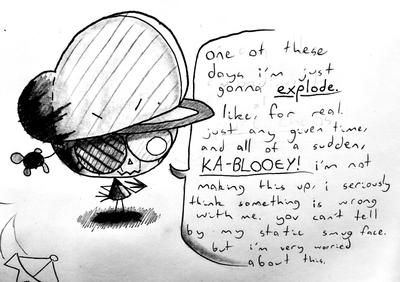 one of these
days i'm just
gonna explode.
like, for real.
just any given time,
and all of a sudden,
KA-BLOOEY! i'm not
making this up, i seriously
think something is wrong
with me. you can't tell
by my static smug face.
but i'm very worried
about this.